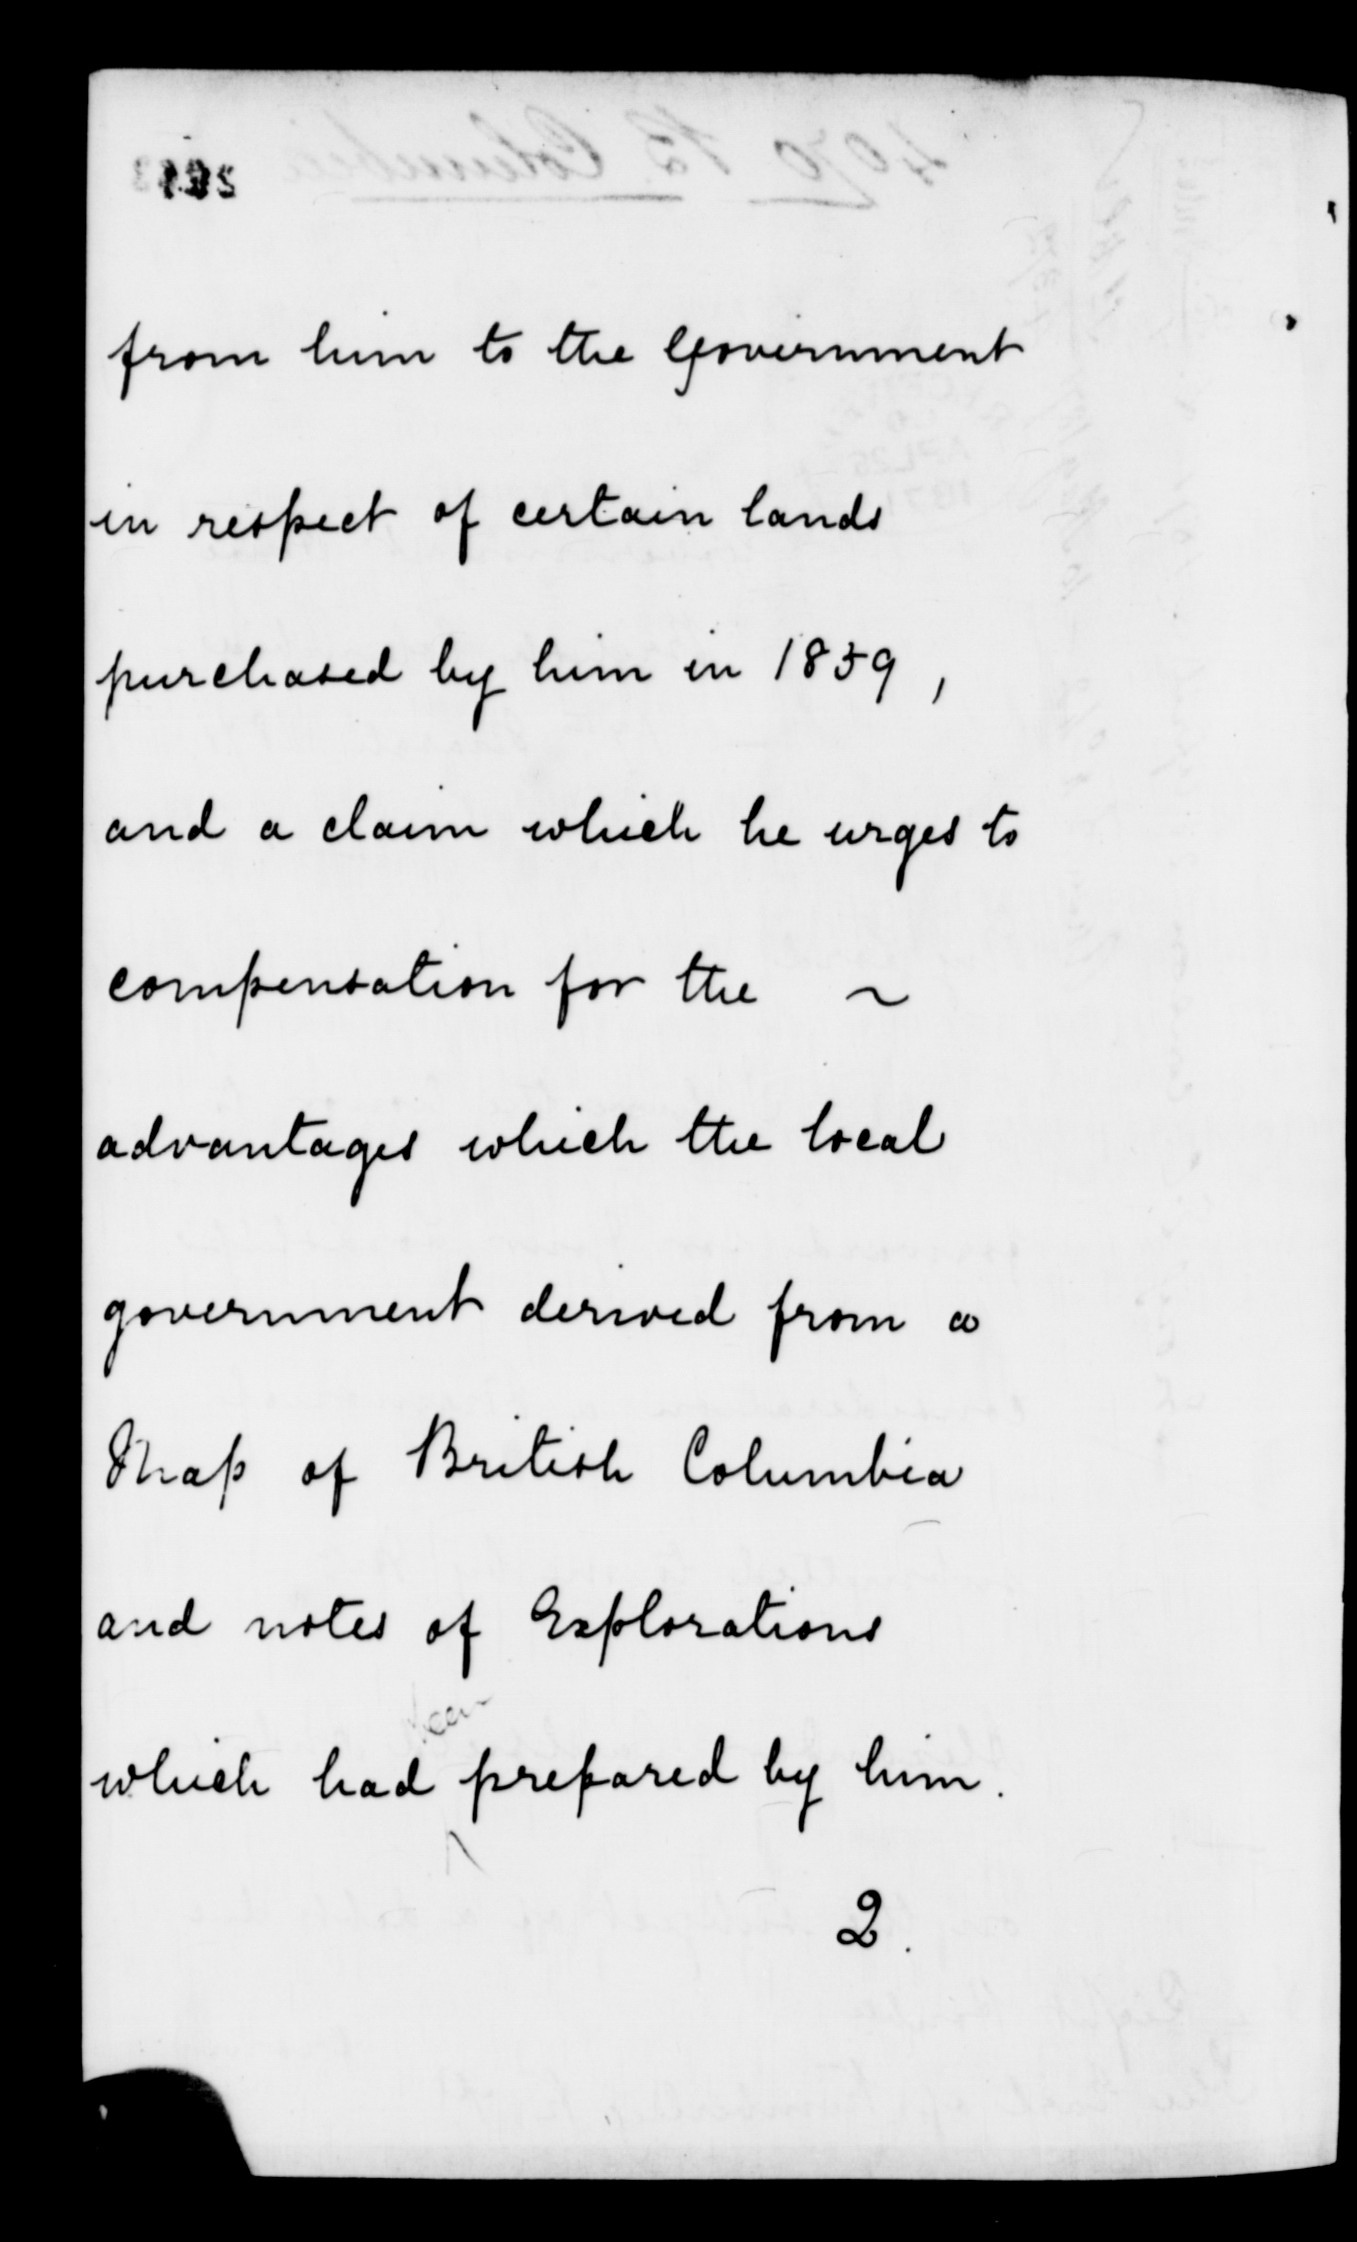 from him to the Government
in respect of certain lands
purchased by him in 1859,
and a claim which he urges to
compensation for the ~
advantages which the local
government derived from a
Map of British Columbia
and notes of Explorations
been
which had prepared by him.
2.